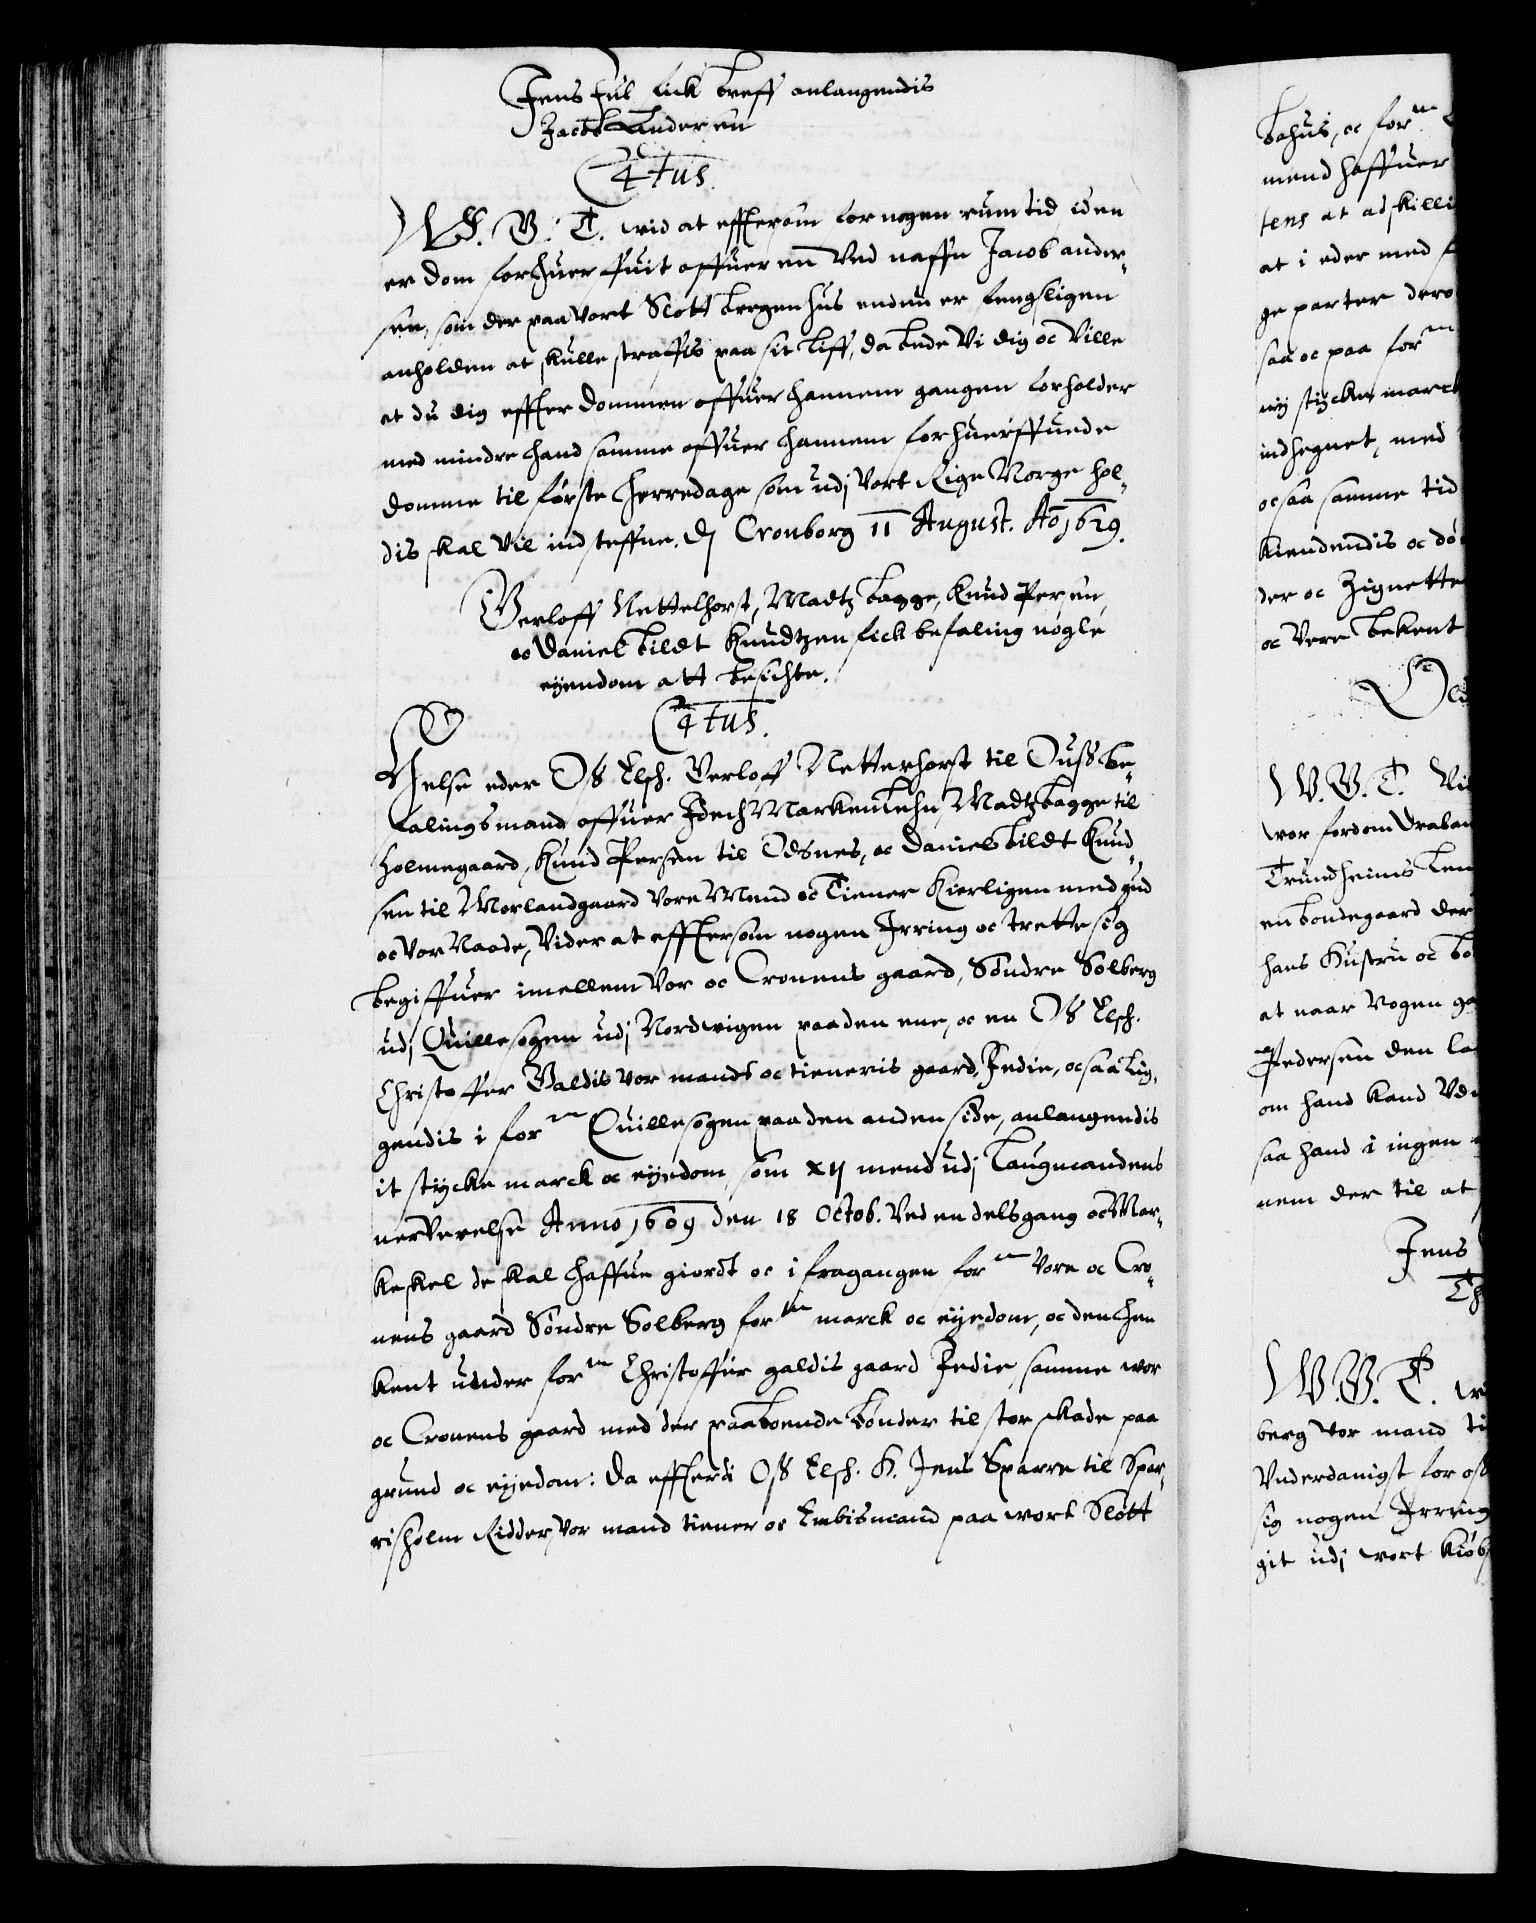 Jens Juel fick breff anlangendis
Jacob Andersen
C4tus.
W. G. T. wid at effterson for nogen rum tid siden
er dom forhuerffuit offuer en Ved naffn Jacob ander-
sen, som der paa Vort Slott Bergenhus endnu er fengsligen
anholden at skulle straffis paa sit liff, da bede Vi dig oc Ville
at du dig effter dommen offuer hannem gangen forholder
med mindre hand samme offuer hannem forhuerffuede
domme til første herredage som udj Vort Rige Norge hol-
dis skal Vil indsteffne. Dj Cronborg 11 August. Aō 1629.
Gerloff Nettelhorst, Madtz Bagge, Knud Persen,
oc Daniel Bildt Knudtzen fick befaling nogle
eyendom att besichte.
C4tus.
Helse eder Os Elsh. Gerloff Netterhorst til Duss be-
falingsmand offuer Idech Marken Lehn, Madtz Bagge til
Holmegaard, Knud Persen til Odsnes, oc Daniel Bildt Knud-
sen til Morlandgaard Vore Mend oc Tiener Kierligen med gud
oc Vor Naade, Vider at efftersom nogen Irring oc trette sig
begiffuer imellem Vor oc Cronens gaard, Søndre Solberg
udj Quillesogen udj Nordwigen paa den ene, oc en Os Elsh.
Christoffer Galdis Vor mands oc tieneris gaard, Jedie, ocsaa lig-
gendis i forⁿᵉ Quillesogen paa den anden side, anlangendis
it stycke marck oc eyedom, som xij mend udj Laugmandens
nerverelse Anno 1609 den 18 Octob. Ved en delsgang oc Mar-
keskel de skal haffue giordt oc ifragangen forⁿᵉ Vore oc Cro-
nens gaard Søndre Solberg forⁿᵉ marck oc eyedom, oc den hen
kent under forⁿᵉ Christoffer galdis gaard Jedie, samme wor
oc Cronens gaard med der paaboende bønder til stor skade paa
grund oc eyedom: Da effterdi Os Elsh. H. Jens Sparre til Spar-
risholm Ridder, Vor mand tiener oc Embismand paa wort Slott
Bahus, oc forⁿᵉ
mend haffuer
tens at adskilli
at i eder med
ge parter dero
saa oc paa forⁿᵉ
nij stycke marck
indhegnet, med
ocsaa samme tid
kiendendis oc dø
der oc Zignette
oc Vere bekent
W. G. T. Vi
wor fordom Draban
Trundheims Len
en bondegaard der
hans Hustru oc bø
at naar Vogen ga
Pedersen den la
om hand kand Ved
saa hand i ingen
nem der til at
Jens
W. G. T. wi
berg Vor mand ti
Vnderdanigst for oss
sig nogen Irring
git udj wort kiøb